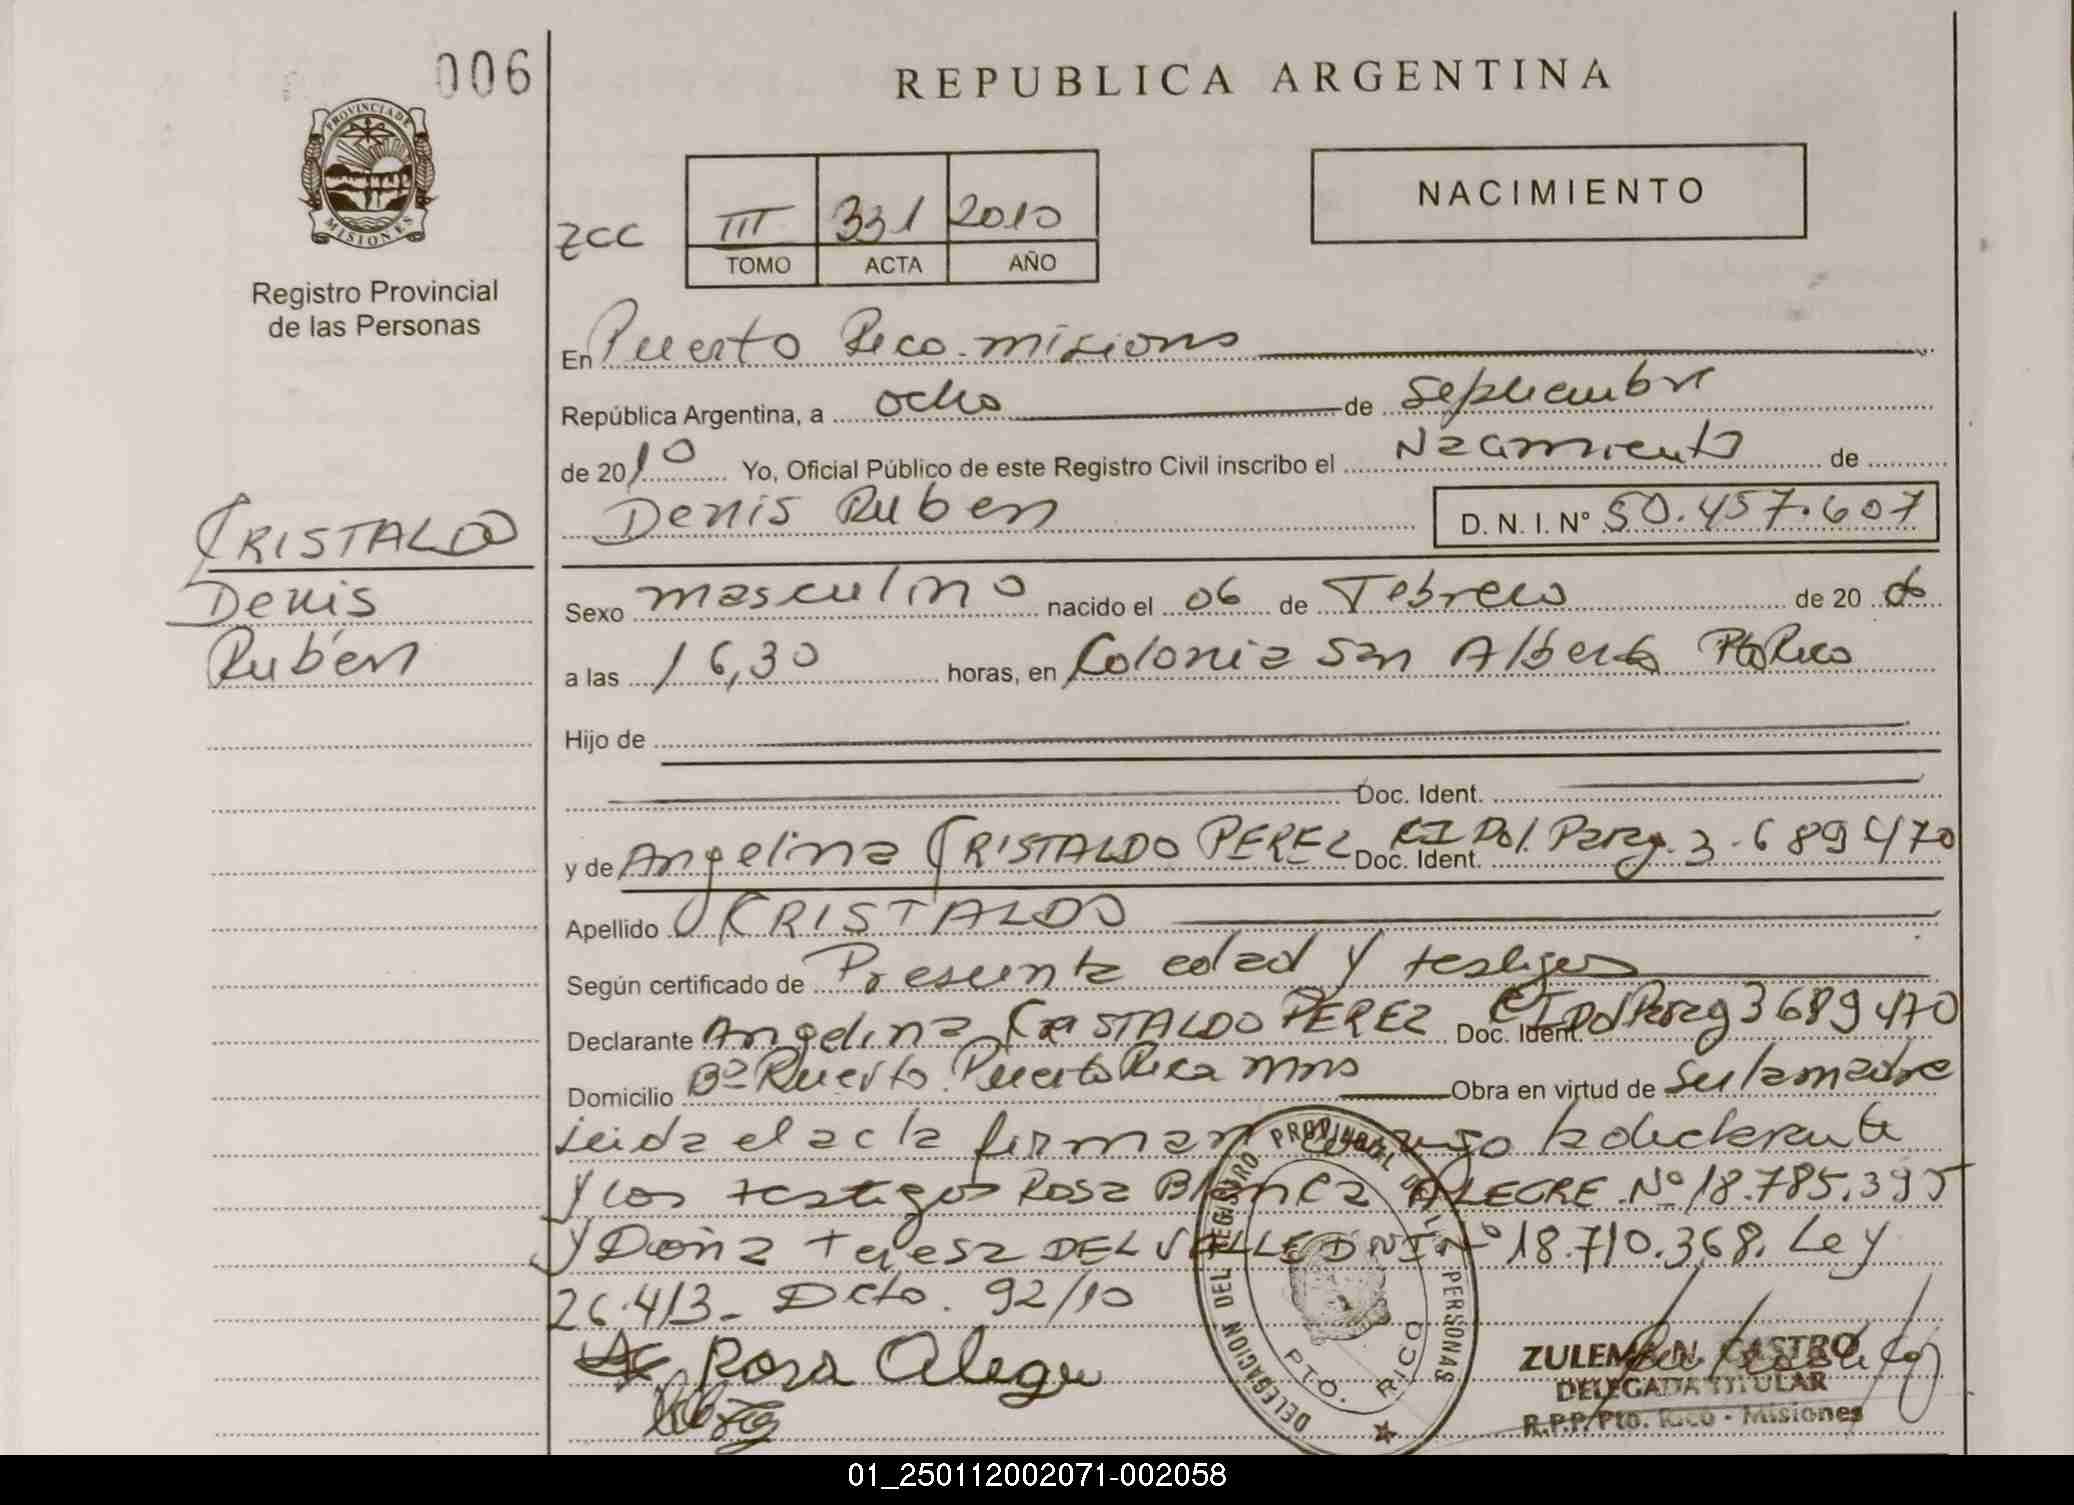 006
REPUBLICA ARGENTINA
PROVINCIA DE MISIONES
Registro Provincial
de las Personas
NACIMIENTO
zcc
III 331 2010
TOMO ACTA AÑO
En Puerto Rico - misiones
República Argentina, a ocho de septiembre
de 2010 Yo, Oficial Público de este Registro Civil inscribo el Nacimiento de
Denis Ruben D. N. I. Nº 50.457.607
CRISTALDO
Denis
Rubén
Sexo masculino nacido el 06 de Febrero de 20
a las 16,30 horas, en Colonia San Alberto Pto Rico
Hijo de
Doc. Ident.
y de Angelina CRISTALDO PEREZ Doc. Ident. CI Pol. Parag. 3.689470
Apellido CRISTALDO
Según certificado de Presunta edad y testigos
Declarante Angelina CRISTALDO PEREZ Doc. Ident. CI Pol Parag 3689470
Domicilio Bº Puerto. Puerto Rico Mns Obra en virtud de ser la madre
Leida el acta firman conmigo la declarante
y los testigos Rosa Blanca ALEGRE Nº 18.785.395
y Doña Teresa DEL VALLE DNI Nº 18.710.368. Ley
26.413 - Dcto. 92/10
Rosa Alegre
DELEGACION DEL REGISTRO PROVINCIAL DE LAS PERSONAS
PTO. RICO
ZULEMA N. CASTRO
DELEGADA TITULAR
R.P.P. Pto. Rico - Misiones
01_250112002071-002058